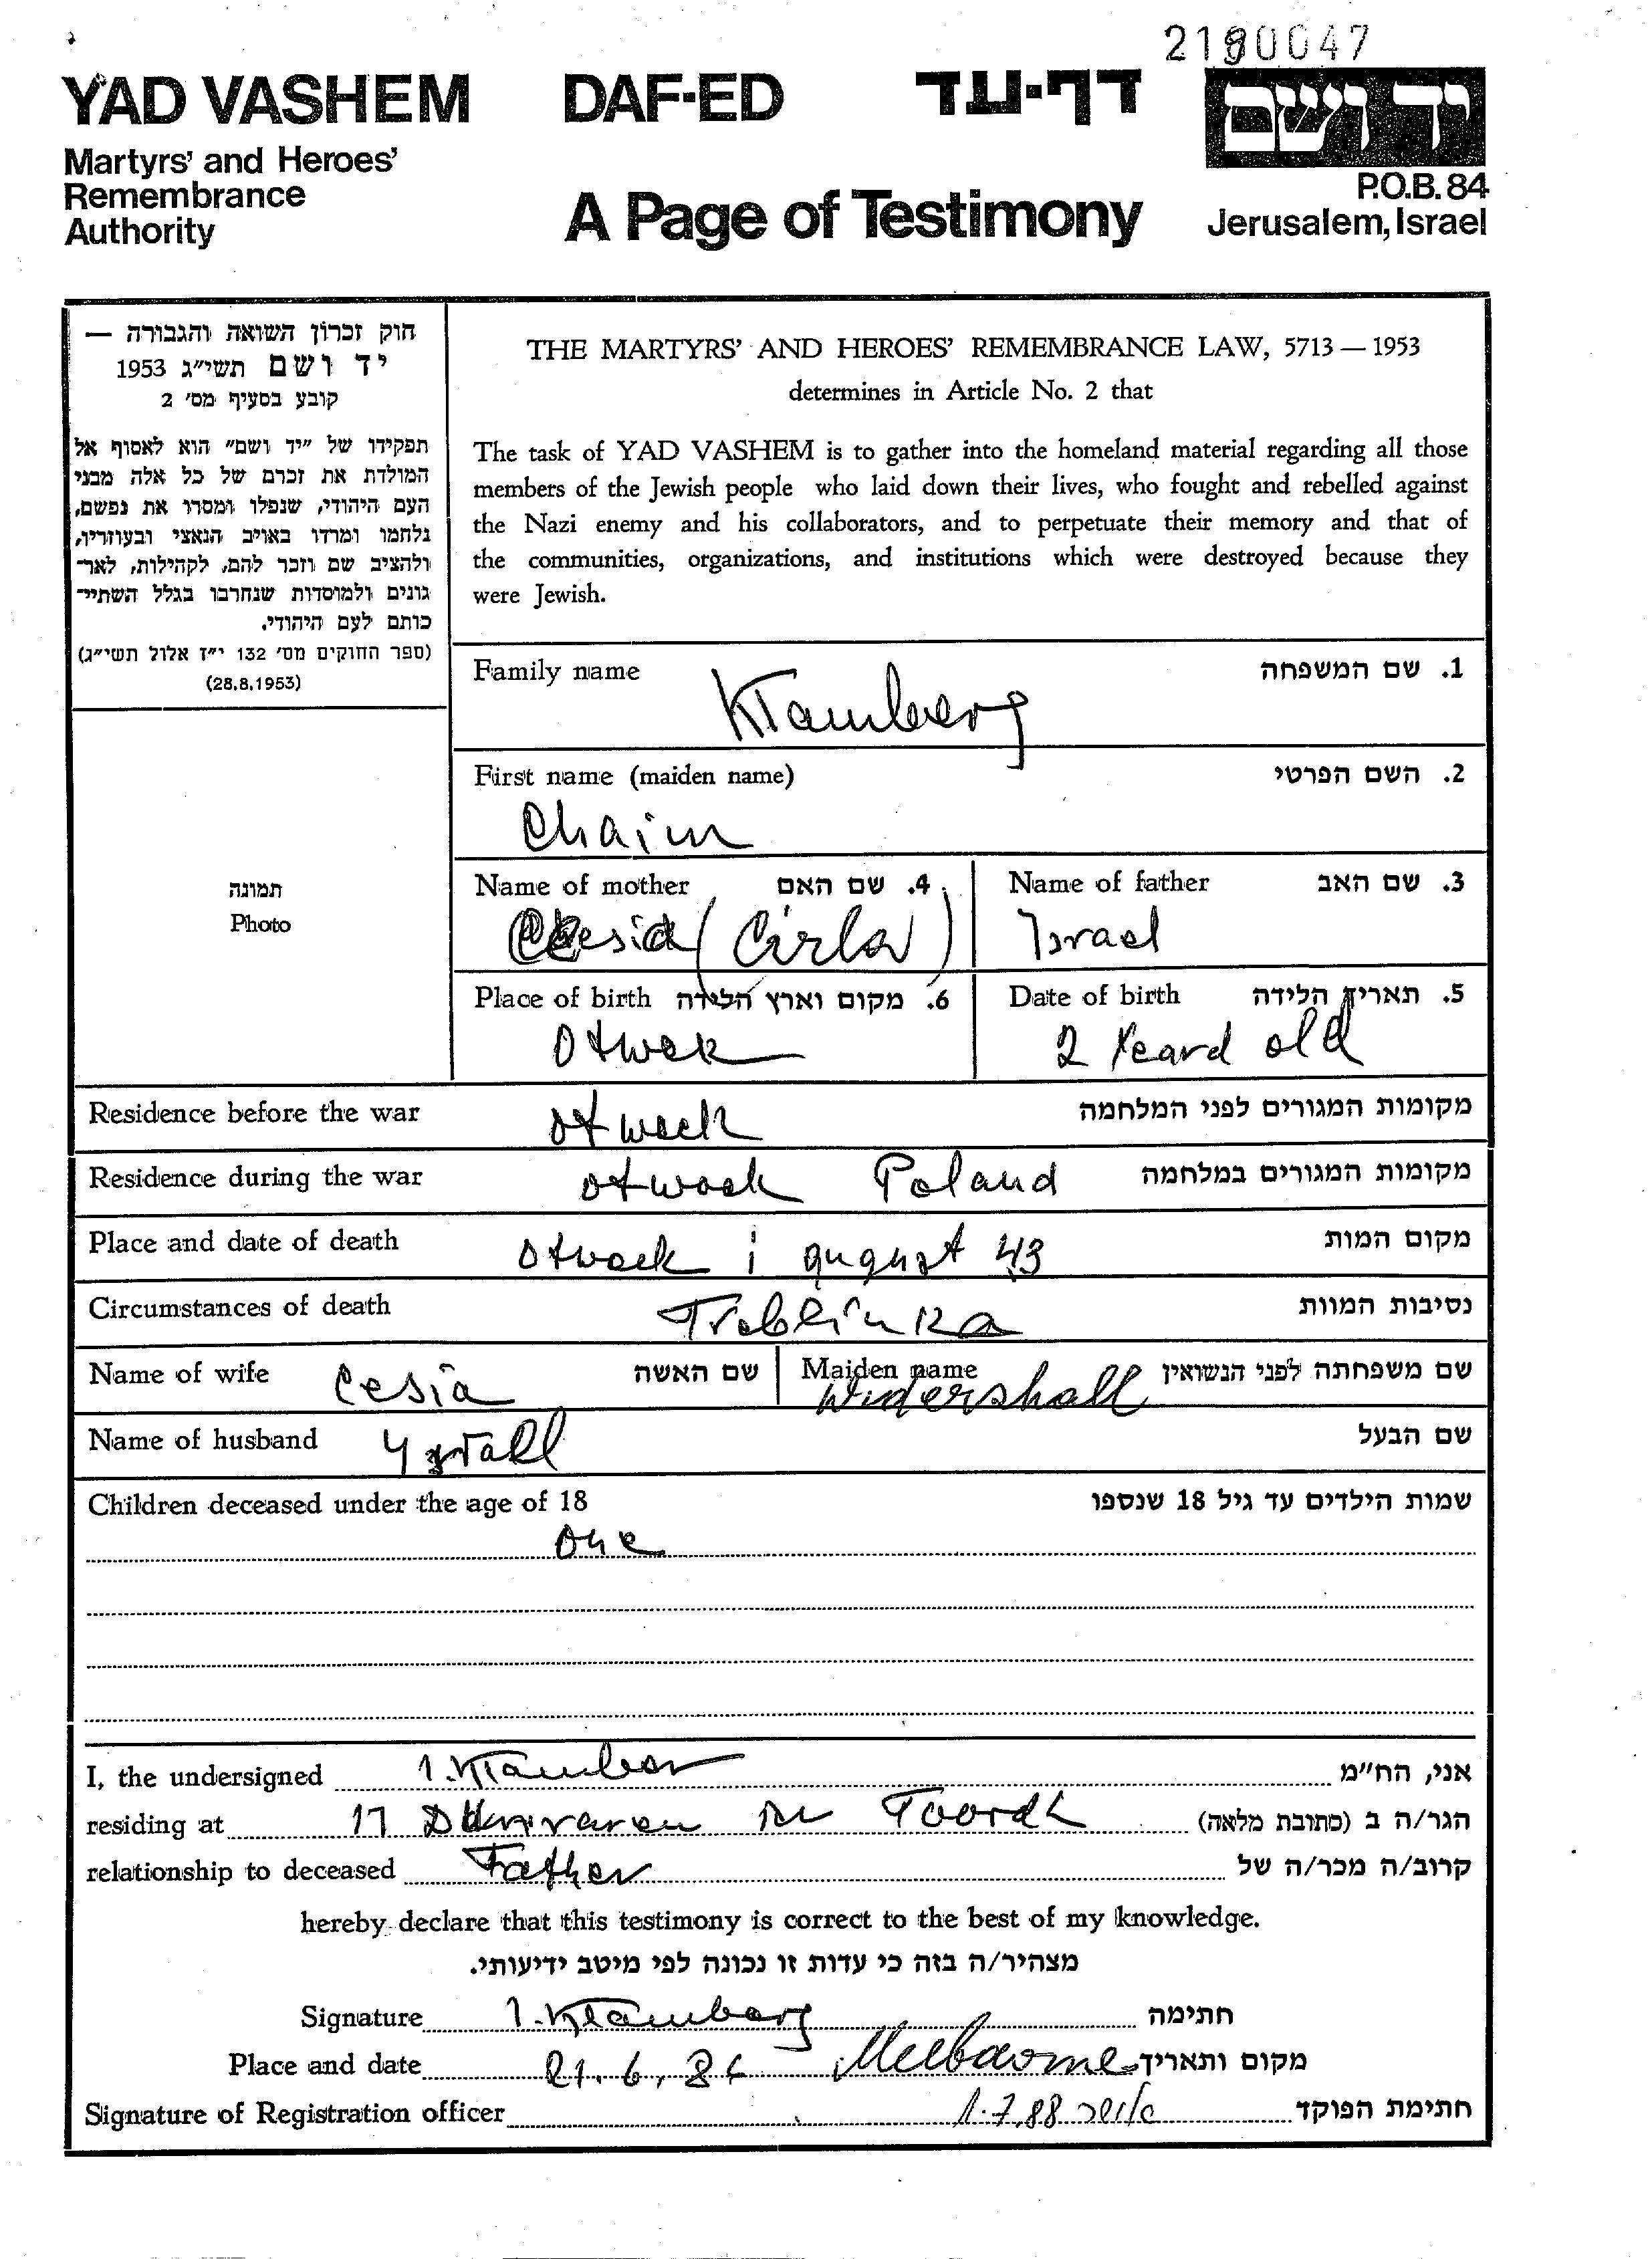 2190047
YAD VASHEM DAF-ED דף-עד יד ושם
Martyrs' and Heroes'
Remembrance
Authority
A Page of Testimony
P.O.B. 84
Jerusalem, Israel
חוק זכרון השואה והגבורה —
יד ושם תשי״ג 1953
קובע בסעיף מס׳ 2
תפקידו של ״יד ושם״ הוא לאסוף אל
המולדת את זכרם של כל אלה מבני
העם היהודי, שנפלו ומסרו את נפשם,
נלחמו ומרדו באויב הנאצי ובעוזריו,
ולהציב שם וזכר להם, לקהילות, לאר־
גונים ולמוסדות שנחרבו בגלל השתיי־
כותם לעם היהודי.
(ספר החוקים מס׳ 132 י״ז אלול תשי״ג)
(28.8.1953)
תמונה
Photo
THE MARTYRS' AND HEROES' REMEMBRANCE LAW, 5713 — 1953
determines in Article No. 2 that
The task of YAD VASHEM is to gather into the homeland material regarding all those
members of the Jewish people who laid down their lives, who fought and rebelled against
the Nazi enemy and his collaborators, and to perpetuate their memory and that of
the communities, organizations, and institutions which were destroyed because they
were Jewish.
Family name 1. שם המשפחה
Klamberg
First name (maiden name) 2. השם הפרטי
Chaim
Name of mother 4. שם האם Name of father 3. שם האב
Cesia (Cirla) Israel
Place of birth 6. מקום וארץ הלידה Date of birth 5. תאריך הלידה
Otwck 2 Yeard old
Residence before the war otweck מקומות המגורים לפני המלחמה
Residence during the war otwock Poland מקומות המגורים במלחמה
Place and date of death Otwock i august 43 מקום המות
Circumstances of death Treblinka נסיבות המוות
Name of wife Cesia שם האשה Maiden name Widershall שם משפחתה לפני הנשואין
Name of husband Yzrall שם הבעל
Children deceased under the age of 18 שמות הילדים עד גיל 18 שנספו
One
I, the undersigned I. Klamber אני, הח״מ
residing at 17 הגר/ה ב (כתובת מלאה)
relationship to deceased Father קרוב/ה מכר/ה של
hereby declare that this testimony is correct to the best of my knowledge.
מצהיר/ה בזה כי עדות זו נכונה לפי מיטב ידיעותי.
Signature I. Klamberg חתימה
Place and date 21.6. Melbaorne מקום ותאריך
Signature of Registration officer 1.7.88 חתימת הפוקד